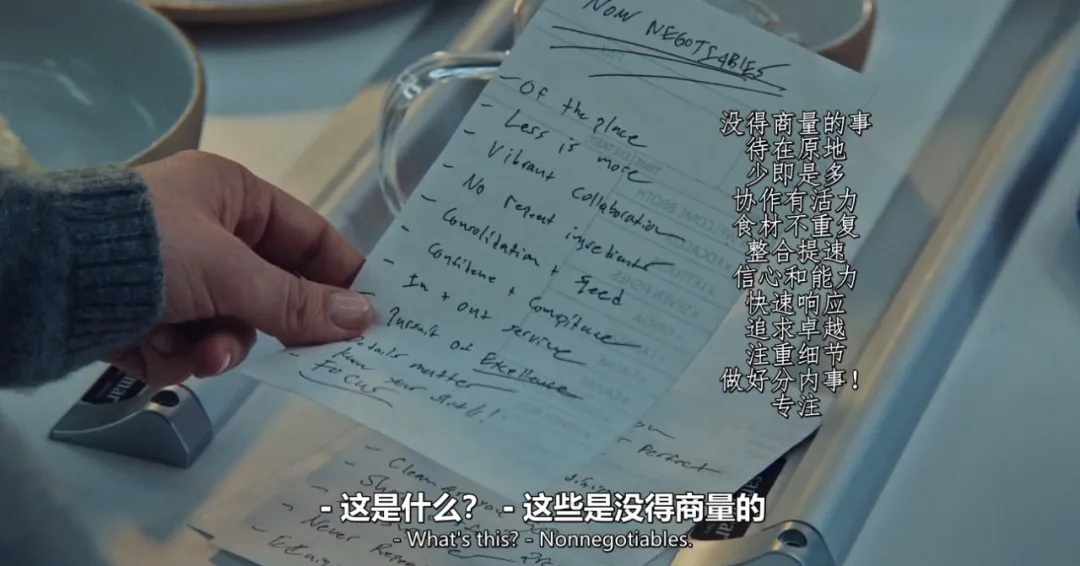 NON NEGOTIABLES
- Of the place
- Less is more
- Vibrant Collaboration
- No repeat ingredients
- Consolidation + Speed
- Confidence + Compitence
- In + out service
- Pursuit of Excellence
- Details matter
- know your shit!
FOCUS
没得商量的事
待在原地
少即是多
协作有活力
食材不重复
整合提速
信心和能力
快速响应
追求卓越
注重细节
做好分内事!
专注
Perfect
- Clean
- Never
- 这是什么? - 这些是没得商量的
- What's this? - Nonnegotiables.